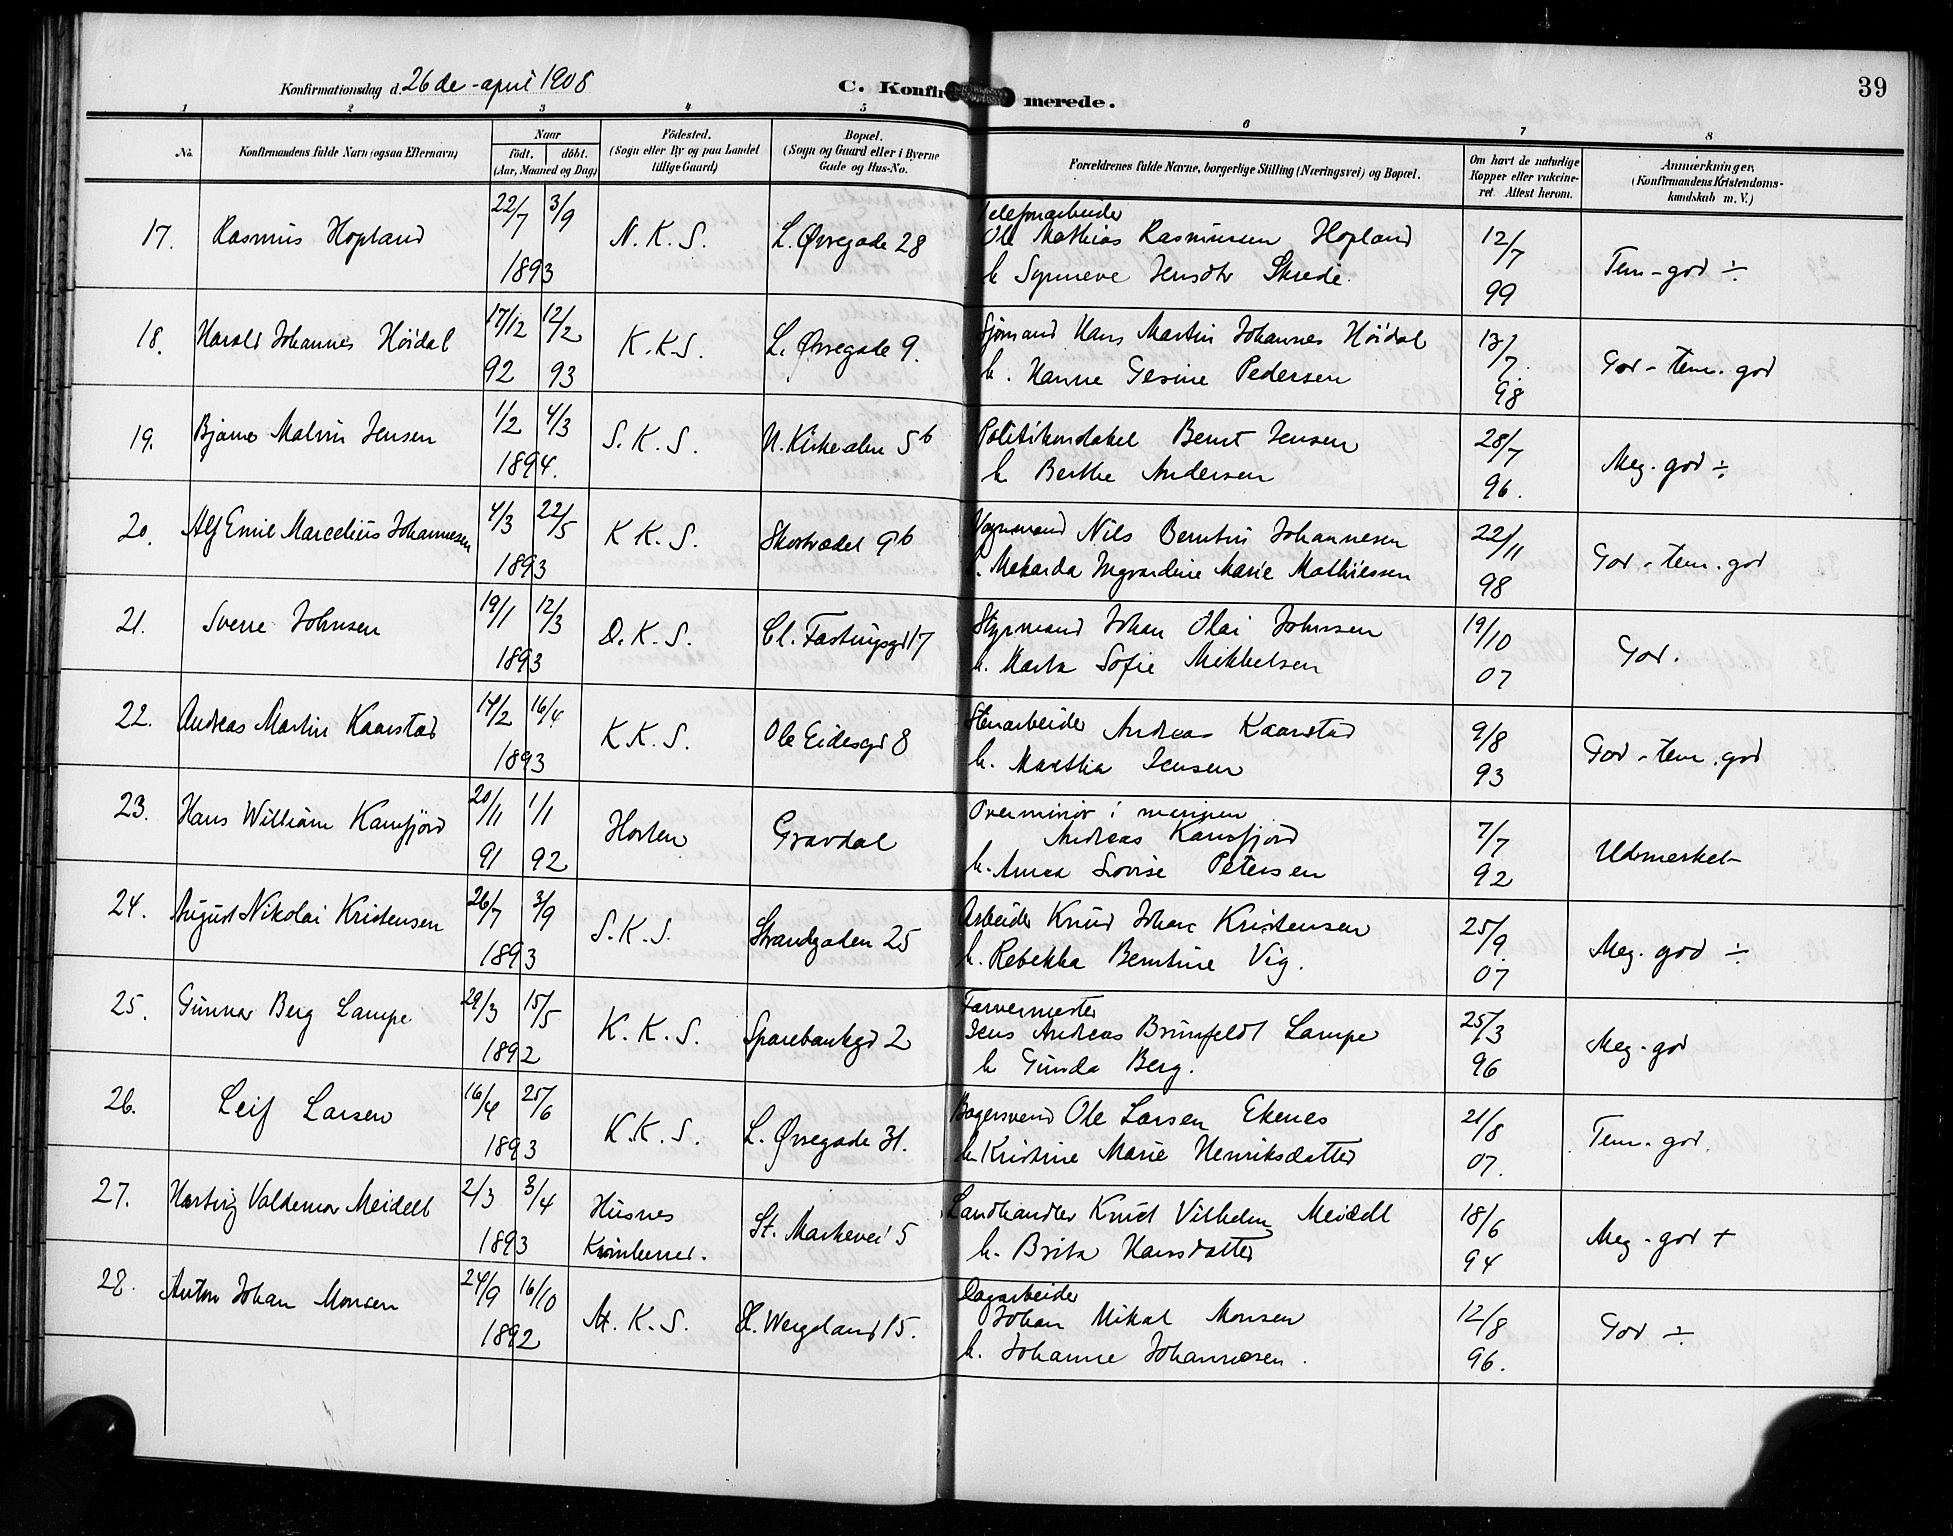 Konfirmationsdag d. 26de april 1908
C. Konfirmerede.
39
1 2 3 4 5 6 7 8
No. Konfirmandens fulde Navn (ogsaa Efternavn) Naar født. døbt. (Aar, Maaned og Dag) Fødested. (Sogn eller By og paa Landet tillige Gaard) Bopæl. (Sogn og Gaard eller i Byerne Gade og Hus-No. Forældrenes fulde Navne, borgerlige Stilling (Næringsvei) og Bopæl. Om havt de naturlige Kopper eller vakcineret. Attest herom. Anmærkninger. (Konfirmandens Kristendomskundskab m. V.)
17. Rasmus Hopland 22/7 3/9 1893 N. K. S. L. Øvregade 28 Telefonarbeider
Ole Mathias Rasmussen Hopland 12/7 99 Tem - god ÷
h. Synneve Jensdtr Skrede.
18. Harald Johannes Höidal 17/12 92 12/2 93 K. K. S. L. Øvregade 9. Sjømand Hans Martin Johannes Höidal 13/7. 98 God - tem. god
h. Hanne Gesine Pedersen
19. Bjarne Malvin Jensen 1/2 4/3 1894. S. K. S. N. Kirkealm 5b Politikonstabel Bernt Jensen 28/7 96. Meg. god ÷
h Berthe Andersen
20. Alf Emil Marcelius Johannesen 4/3 22/5 1893 K K. S. Skostrædet 9b Vognmand Nils Berntin Johannesen 22/11 98 God - tem. god
h. Ingvardine Marie Mathiessen
21. Sverre Johnsen 19/1 12/3 1893 D. K. S. Cl. Fastingsgd 17 Styrmand Johan Olai Johnsen 19/10 07 God.
h. Marta Sofie Mikkelsen
22. Andreas Martin Kaarstad 14/2 16/4 1893 K K. S. Ole Eidesgd 8 Stenarbeider Andreas Kaarstad 9/8 93 God - tem. god
h. Marthia Jensen
23. Hans William Kamfjord 20/11 91 1/1 92 Horten Gravdal Overminør i marinen
Andreas Kamfjord 7/7 92 Udmerket
h. Anna Lovise Petersen
24. August Nikolai Kristensen 26/7 3/9 1893 S. K. S. Strandgaten 25 Arbeider Knud Johan Kristensen 25/9. 07 Meg. god ÷
h. Rebekka Berntine Vig.
25. Gunnar Berg Lampe 29/3 15/5 1892 K. K. S. Sparebankgd 2 Farvermester
Jens Andreas Brünfeldt Lampe 25/3 96 Meg. god
h Gunda Berg.
26. Leif Larsen 16/4 25/6 1893 K. K. S. L. Øvregade 31. Bagersvend Ole Larsen Ekenes 21/8 07. Tem. god.
h. Kristine Marie Henriksdatter
27. Hartvig Valdemar Meidell 2/3 3/4 1893 Husnes Kvinherred. St. Markevei 5 Landhandler Knut Vilhelm Meidell 18/6 94 Meg - god +
h. Brita Hansdatter
28. Anton Johan Monsen 24/9 16/10 1892 M. K. S. H. Wergeland 15. Dagarbeider
Johan Mikal Monsen 12/8 96. God ÷
h. Johanne Johannesen.